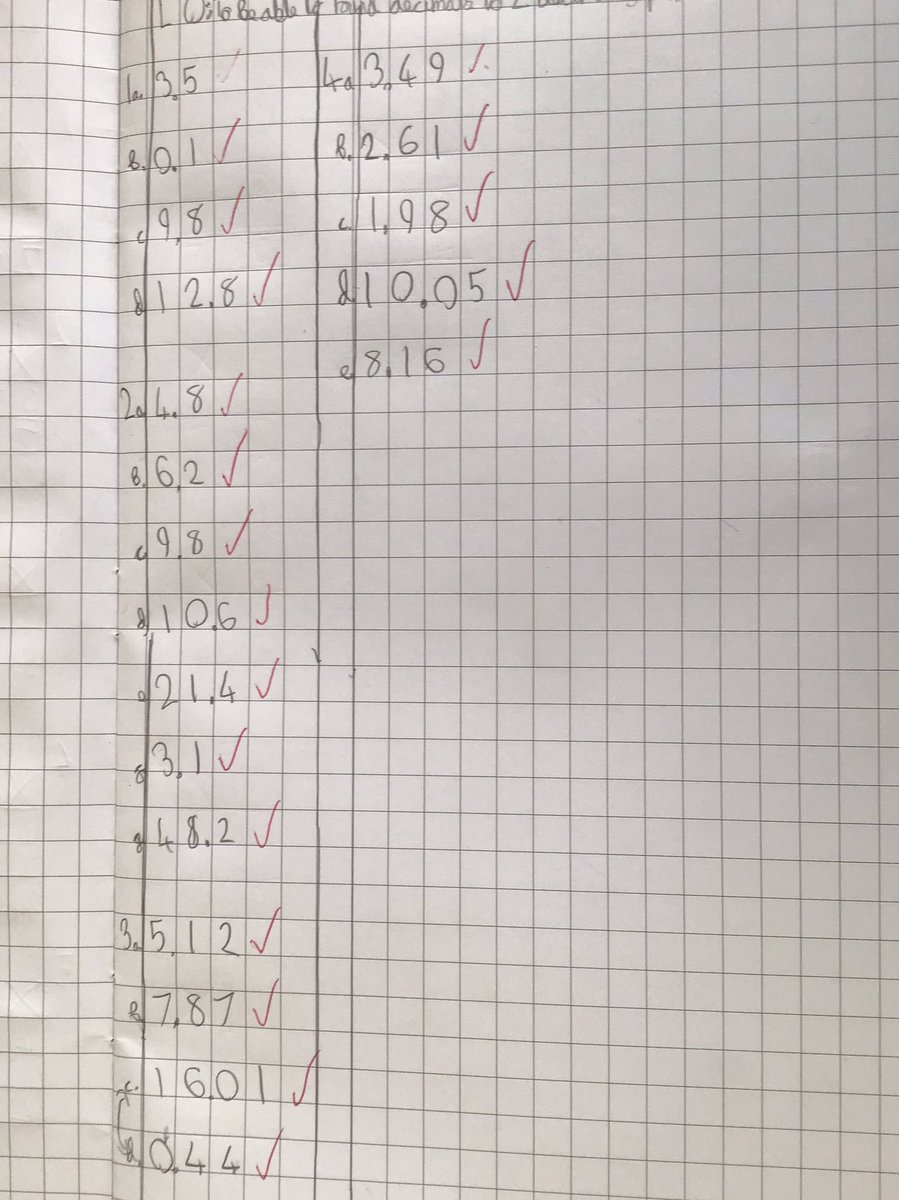 I Will Be able to round decimals to 2
1a. 3.5
B. 0.1
c 9.8
d 12.8
2a 4.8
B. 6.2
c 9.8
d 10.6
e 21.4
f 3.1
g 48.2
3a 5.12
B 7.87
c. 16.01
d. 0.44
4a 3.49
B. 2.61
c 1.98
d 10.05
e 8.16